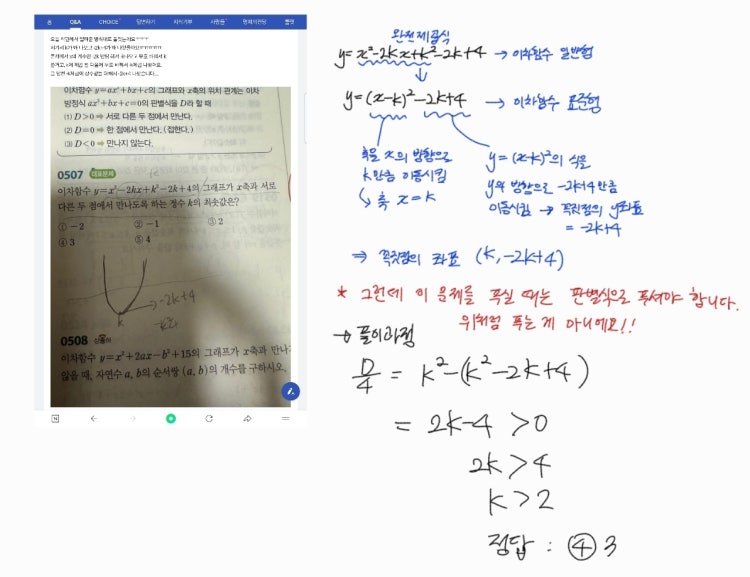 홈
Q&A
CHOICE
답변하기
지식기부
사람들
명예의전당
플랫
이차함수 y=ax²+bx+c의 그래프와 x축의 위치 관계는 이차
방정식 ax²+bx+c=0의 판별식을 D라 할 때
(1) D>0 ⇒ 서로 다른 두 점에서 만난다.
(2) D=0 ⇒ 한 점에서 만난다. (접한다.)
(3) D<0 ⇒ 만나지 않는다.
0507 대표문제
이차함수 y=x²-2kx+k²-2k+4의 그래프가 x축과 서로
다른 두 점에서 만나도록 하는 정수 k의 최솟값은?
① -2
② -1
③ 2
④ 3
⑤ 4
-2k+4
k
0508
이차함수 y=x²+2ax-b²+15의 그래프가 x축과 만나
않을 때, 자연수 a, b의 순서쌍 (a, b)의 개수를 구하시오.
완전제곱식
y=x²-2kx+k²-2k+4 → 이차함수 일반형
↓
y=(x-k)²-2k+4 → 이차함수 표준형
축을 x의 방향으로
k만큼 이동시킴
↳ 축 x=k
y=(x-k)²의 식을
y의 방향으로 -2k+4만큼
이동시킴 → 꼭짓점의 y좌표
= -2k+4
⇒ 꼭짓점의 좌표 (k, -2k+4)
* 그런데 이 문제를 푸실 때는 판별식으로 푸셔야 합니다.
위처럼 푸는 게 아니에요!!
→ 풀이과정
D/4 = k²-(k²-2k+4)
= 2k-4 >0
2k>4
k>2
정답 : ④ 3